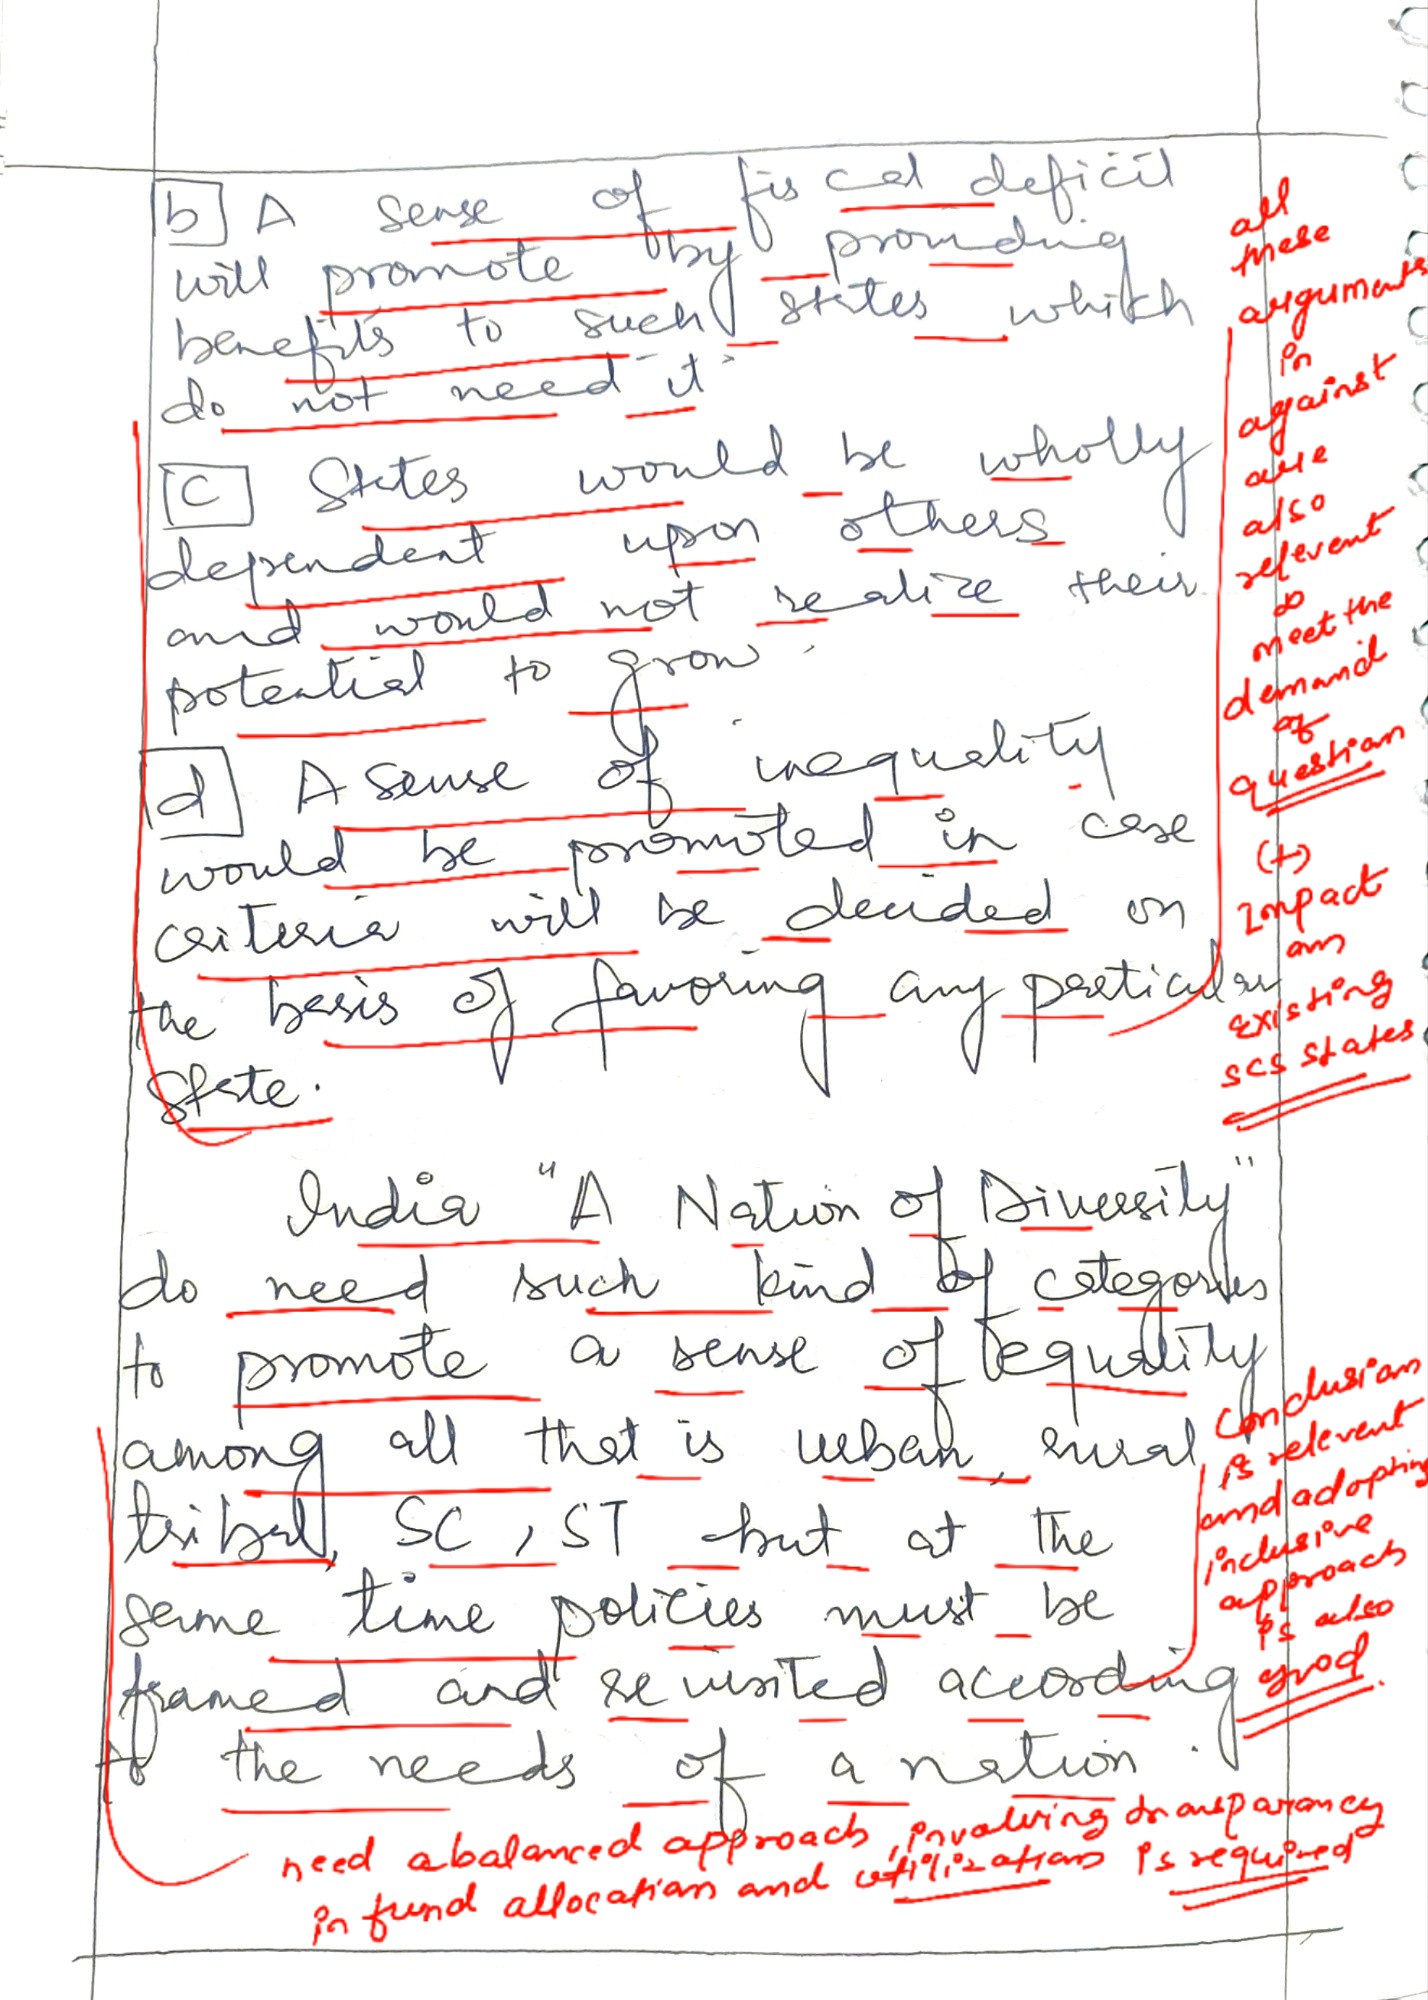 b] A sense of fiscal deficit
will promote by providing
benefits to such states which
do not need it
c States would be wholly
dependent upon others
and would not realize their
potential to grow.
d A sense of inequality
would be promoted in case
criteria will be decided on
the basis of favoring any particular
State.
India "A Nation of Diversity"
do need such kind of categories
to promote a sense of equality
among all that is urban, rural
tribal, SC, ST but at the
same time policies must be
framed and revisited according
to the needs of a nation.
all
these
arguments
in
against
are
also
relevent
to
meet the
demand
of
question
(+)
Impact
on
existing
SCS States
conclusion
is relevent
and adopting
inclusive
approach
is also
good.
need a balanced approach, involving transparancy
in fund allocation and utilization is required